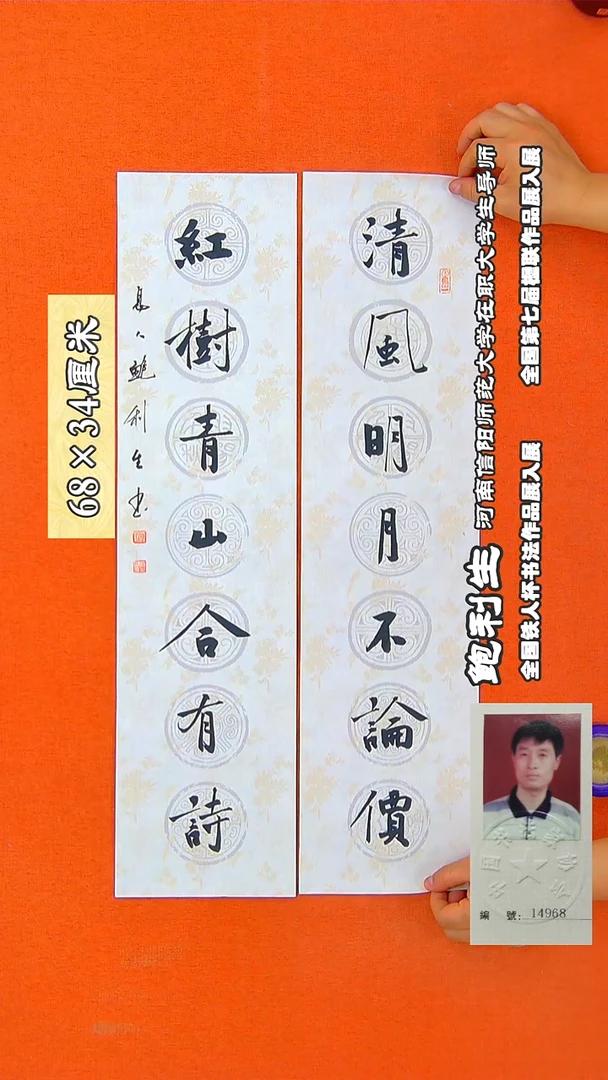 清風明月不論價
紅樹青山合有詩
鮑利生书
68×34厘米
鲍利生 河南信阳师范大学在职大学生导师
全国铁人杯书法作品展入展 全国第七届楹联作品展入展
編 號：14968